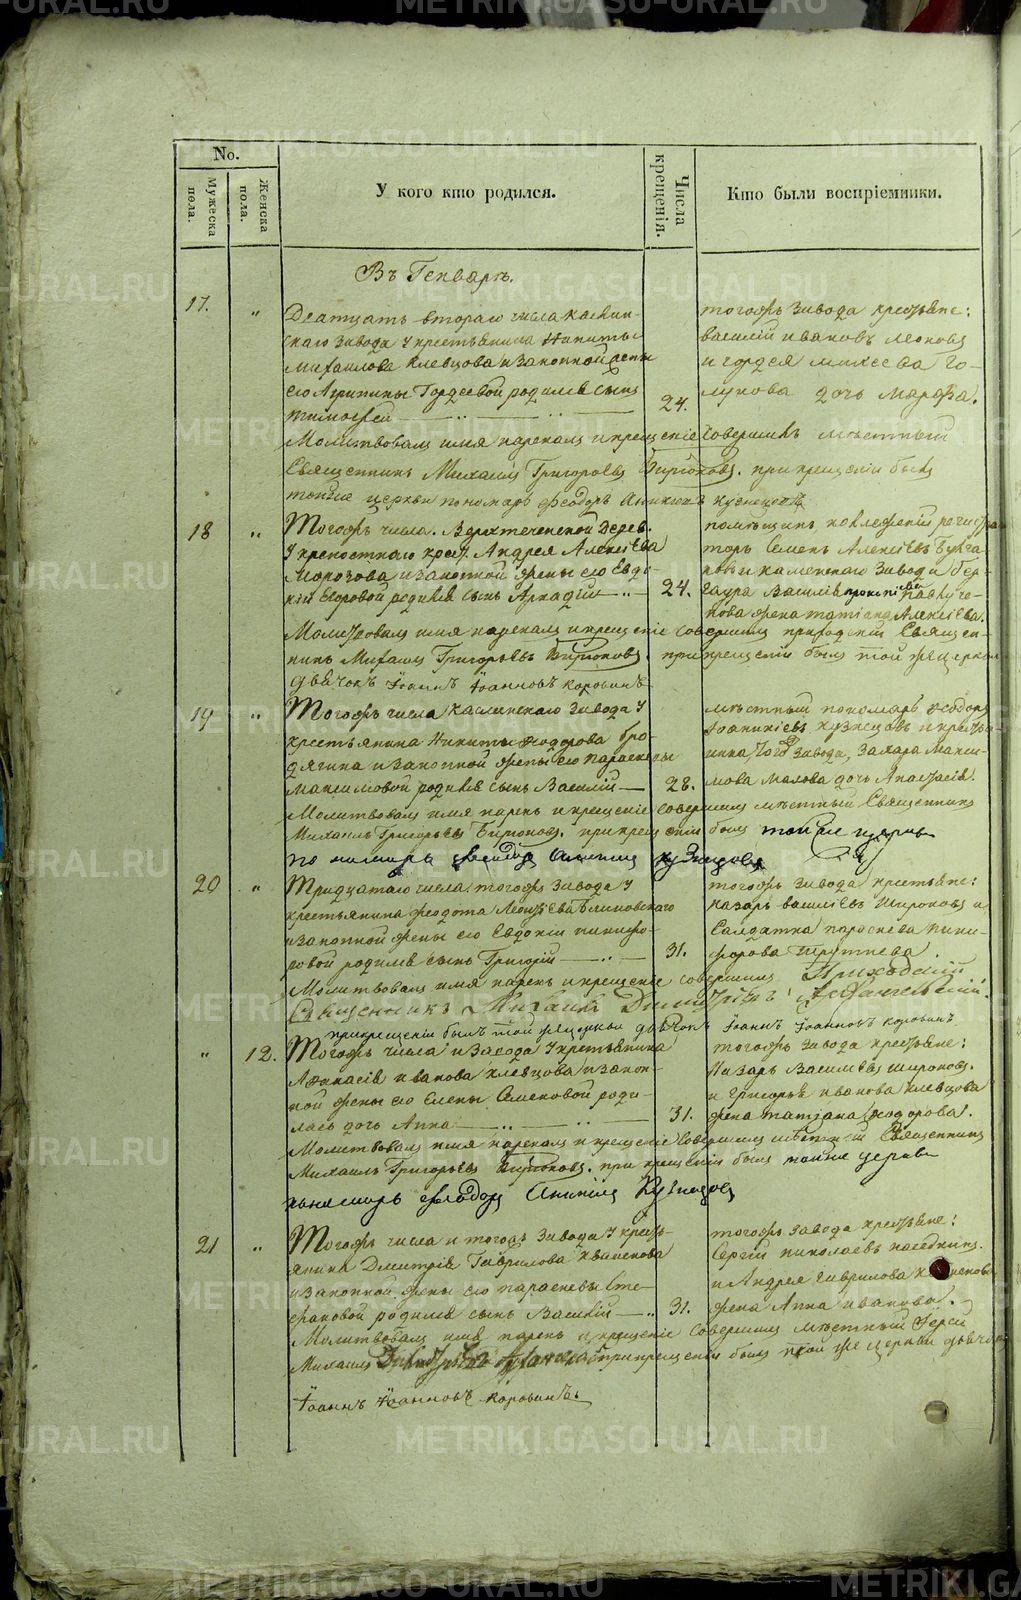 METRIKI.GASO-URAL.RU
No.
Мужеска пола.
Женска пола.
У кого кто родился.
Числа крещенія.
Кто были воспріемники.
Въ Генварѣ.
17. "
Дватцать втораго числа Каслин-
скаго завода у крестьянина Никиты
Михаилова Клевцова и законной жены
его Агрипины Гордеевой родился сынъ
Тимофей
24.
тогожъ завода крестьяне:
Василій Ивановъ Леоновъ
и Гордея Михеева Го-
лунова дочь Марфа.
Молитвовалъ имя нарекалъ и крещеніе совершилъ мѣстный
Священникъ Михаилъ Григорьевъ Бирюковъ. при крещеніи былъ
тойже церкви пономарь Феодоръ Аникіевъ Кузнецовъ
18 "
Тогожъ числа. Верхтеченской дерев.
у крепостнаго крест. Андрея Алексіева
Морозова и законной жены его Евдо-
кіи Егоровой родился сынъ Аркадій
24.
помѣщикъ коллежскій регистра
торъ Семенъ Алексіевъ
и Каменскаго завода
Василія
жена Татіана Алексіева.
Молитвовалъ имя нарекалъ и крещеніе совершилъ приходскій Священ-
никъ Михаилъ Григорьевъ Бирюковъ. при крещеніи былъ той же церкви
дьячокъ Іоаннъ Іоанновъ Коровинъ
19 "
Тогожъ числа Каслинскаго завода у
крестьянина Никиты Феодорова Бро-
дягина и законной жены его Параскевы
Максимовой родился сынъ Василій
28.
мѣстный пономарь Феодоръ
Іоанникіевъ Кузнецовъ и крестья-
нина того завода, Захара Макси-
мова Малова дочь Анастасія.
Молитвовалъ имя нарекъ и крещеніе совершилъ мѣстный Священникъ
Михаилъ Григорьевъ Бирюковъ. при крещеніи былъ тойже церкви
пономарь Феодоръ Аникіевъ Кузнецовъ
20 "
Тридцатаго числа тогожъ завода у
крестьянина Федота Леонтіева Блиновскаго
и законной жены его Евдокіи Никифо-
ровой родился сынъ Григорій
31.
тогожъ завода крестьяне:
Назаръ Василіевъ Широковъ и
Салдатка Параскева Ники-
форова
Молитвовалъ имя нарекъ и крещеніе совершилъ Приходскій
Священникъ Михаилъ Димитріевъ Архангельскій.
при крещеніи былъ той же церкви дьячокъ Іоаннъ Іоанновъ Коровинъ
" 12.
Тогожъ числа и завода у крестьянина
Афанасія Иванова Клевцова и закон-
ной жены его Елены Семеновой роди-
лась дочь Анна
31.
тогожъ завода крестьяне:
Назаръ Василіевъ Широковъ.
и Григорья Иванова Клевцова
жена Татіана Феодорова.
Молитвовалъ имя нарекалъ и крещеніе совершилъ мѣстный Священникъ
Михаилъ Григорьевъ Бирюковъ. при крещеніи былъ тойже церкви
пономарь Феодоръ Аникіевъ Кузнецовъ
21 "
Тогожъ числа и тогожъ завода у кресть-
янина Дмитрія Гаврилова
и законной жены его Параскевы Сте-
фановой родился сынъ Василій
31.
тогожъ завода крестьяне:
Сергій Николаевъ Наседкинъ.
и Андрея Гаврилова
жена Анна Иванова.
Молитвовалъ имя нарекъ и крещеніе совершилъ мѣстный Іерей
Михаилъ Димитріевъ Архангельскій при крещеніи былъ той же церкви дьячокъ
Іоаннъ Іоанновъ Коровинъ.